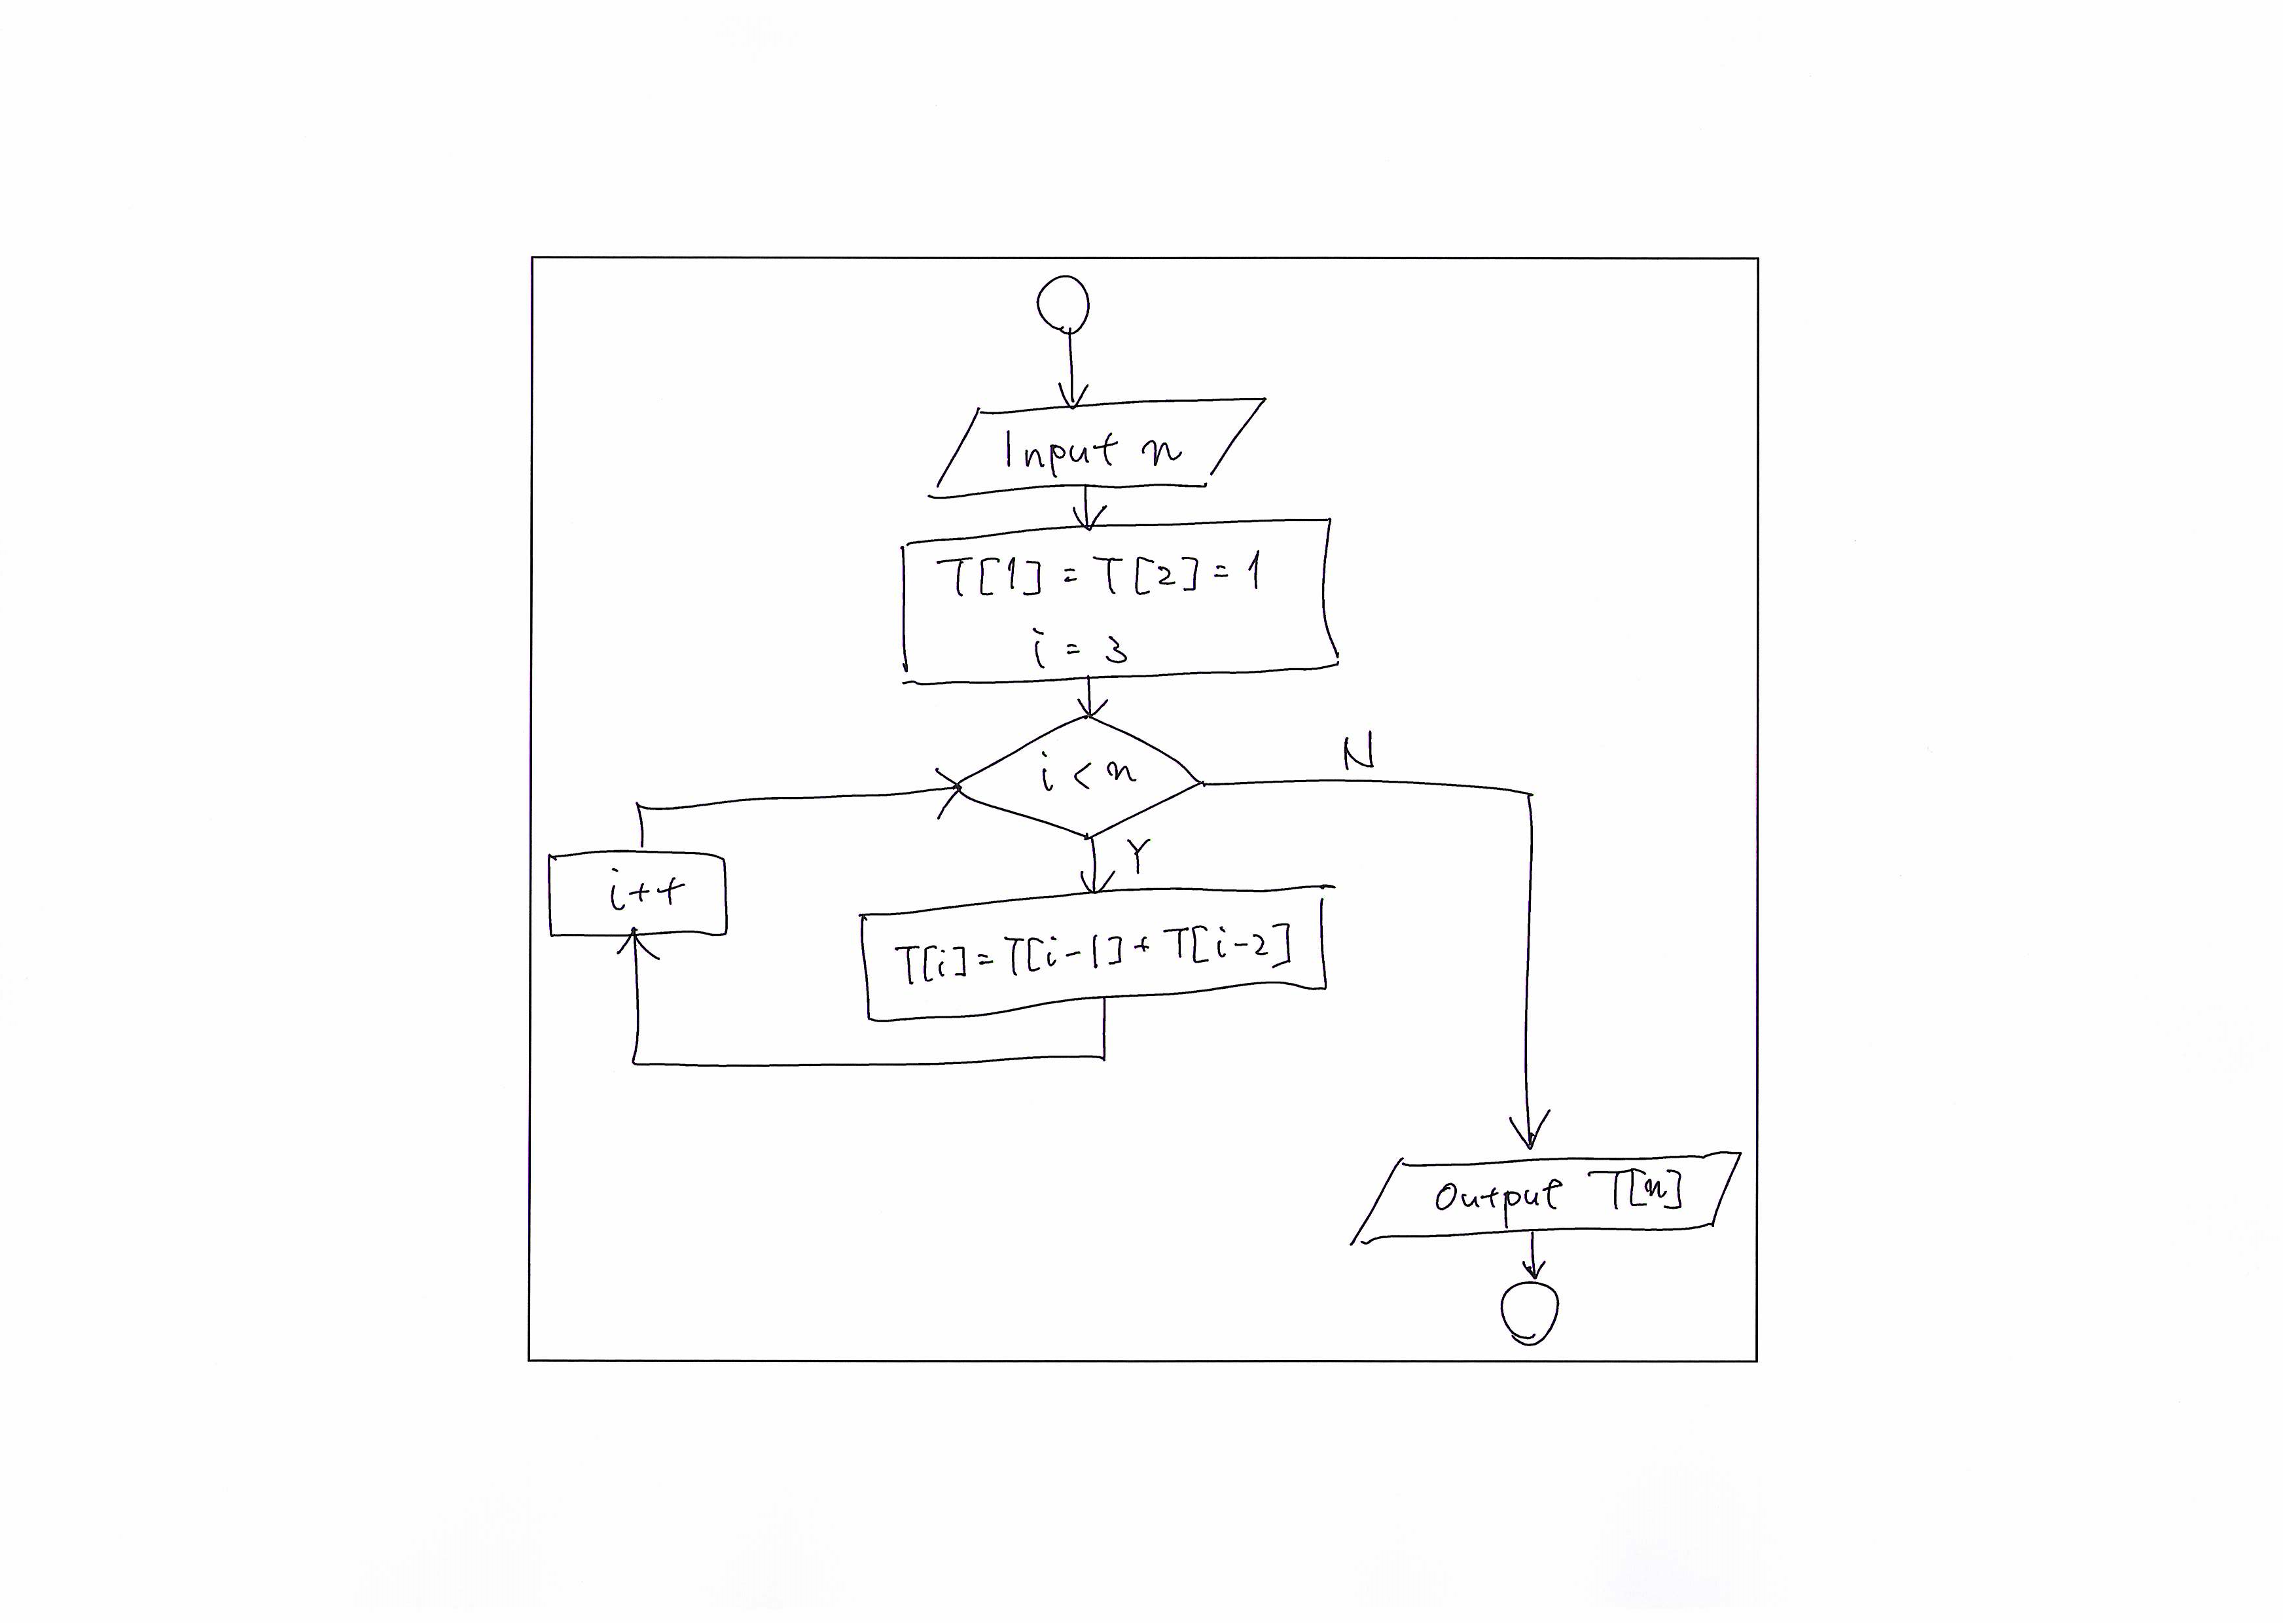 Input n
T[1] = T[2] = 1
i = 3
i < n
N
Y
i++
T[i] = T[i-1] + T[i-2]
Output T[n]